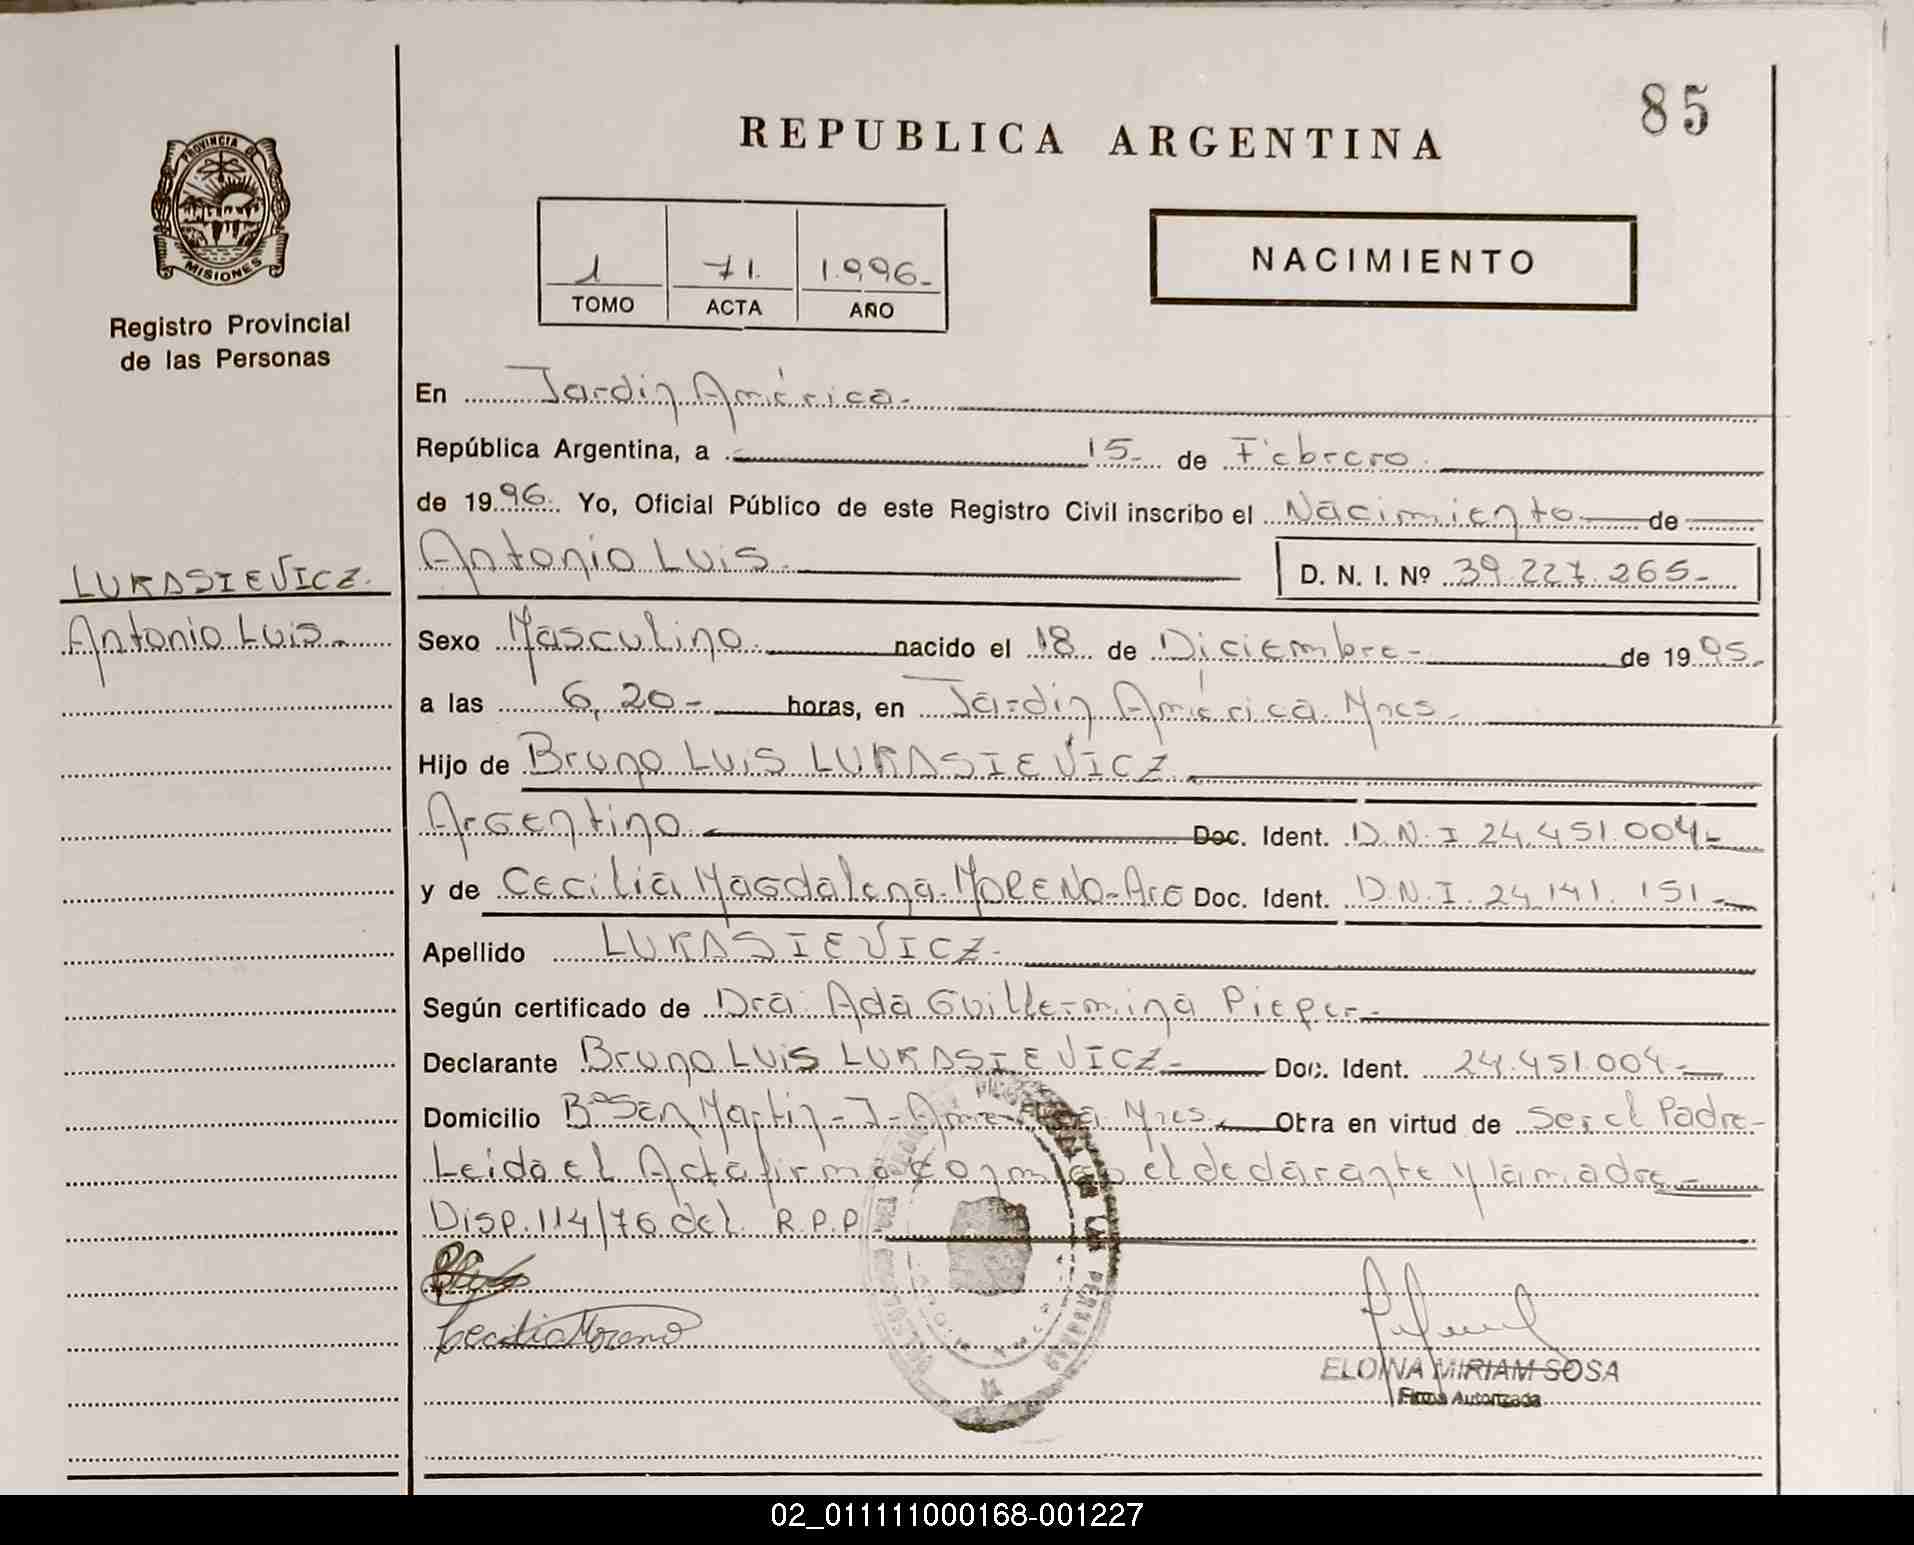 85
REPUBLICA ARGENTINA
PROVINCIA DE
MISIONES
Registro Provincial
de las Personas
1 71. 1.996.-
TOMO ACTA AÑO
NACIMIENTO
En Jardin América.-
República Argentina, a 15- de Febrero
de 1996. Yo, Oficial Público de este Registro Civil inscribo el Nacimiento de
Antonio Luis. D. N. I. Nº 39.227.265-
LUKASIEVICZ.
Antonio Luis.-
Sexo Masculino. nacido el 18 de Diciembre- de 1995.
a las 6,20- horas, en Jardin América. Mnes.
Hijo de Bruno Luis LUKASIEVICZ
Argentino Doc. Ident. D.N.I 24.451.004-
y de Cecilia Magdalena MORENO-Arg Doc. Ident. D.N.I. 24.141.151-
Apellido LUKASIEVICZ.
Según certificado de Dra. Ada Guillermina Pieper-
Declarante Bruno Luis LUKASIEVICZ- Doc. Ident. 24.451.004-
Domicilio Bº San Martin-J-America Mnes. Obra en virtud de Ser el Padre-
Leida el Acta firma conmigo el declarante y la madre-
Disp.114/76 del R.P.P
Cecilia Moreno
ELOINA MIRIAM SOSA
Firma Autorizada
02_011111000168-001227